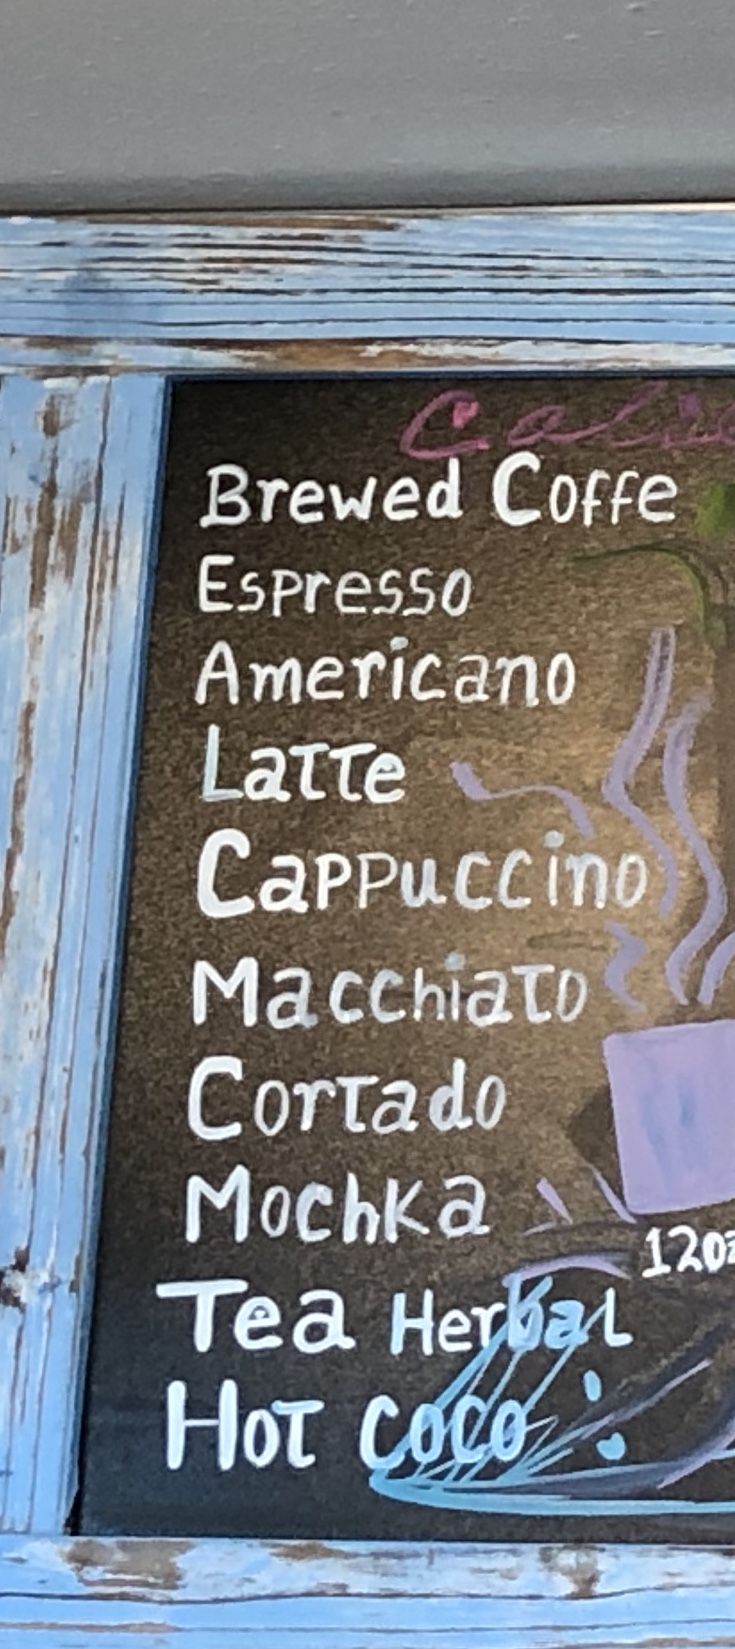 Brewed Coffe
Espresso
Americano
Latte
Cappuccino
Macchiato
Cortado
Mochka
12oz
Tea Herbal
Hot coco